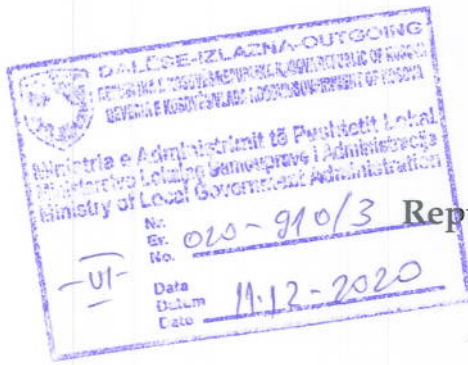 DALËSE-IZLAZNA-OUTGOING
REPUBLIKA E KOSOVËS/REPUBLIKA KOSOVA/REPUBLIC OF KOSOVO
QEVERIA E KOSOVËS/VLADA KOSOVA/GOVERNMENT OF KOSOVA
Ministria e Administrimit të Pushtetit Lokal
Ministarstvo Lokalne Samouprave i Administracija
Ministry of Local Government Administration
Nr.
Br.
No. 020-910/3
-VI-
Data
Datum
Date 11.12-2020
Rep